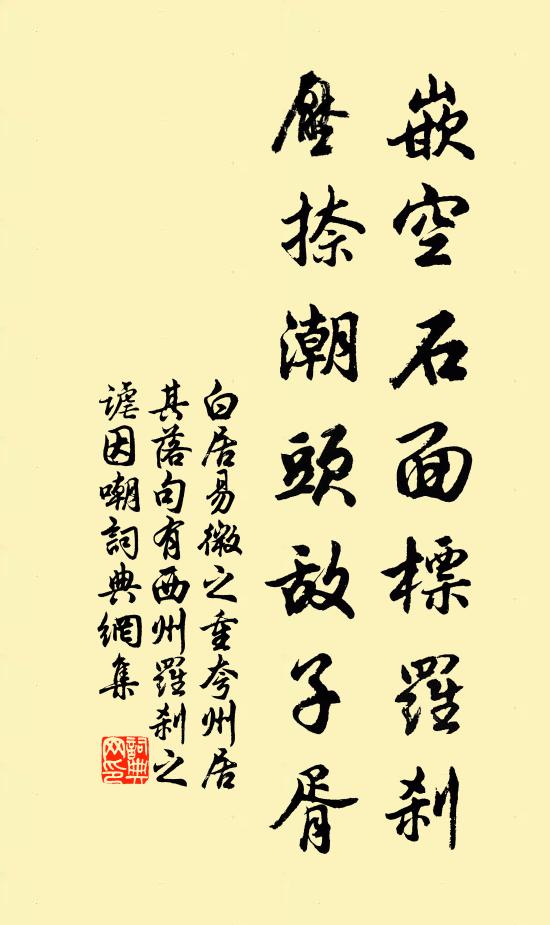 嵌空石面標羅刹
壓捺潮頭敵子胥
白居易微之重夸州居
其落句有西州羅刹之
謔因嘲詞典網集
詞典網印